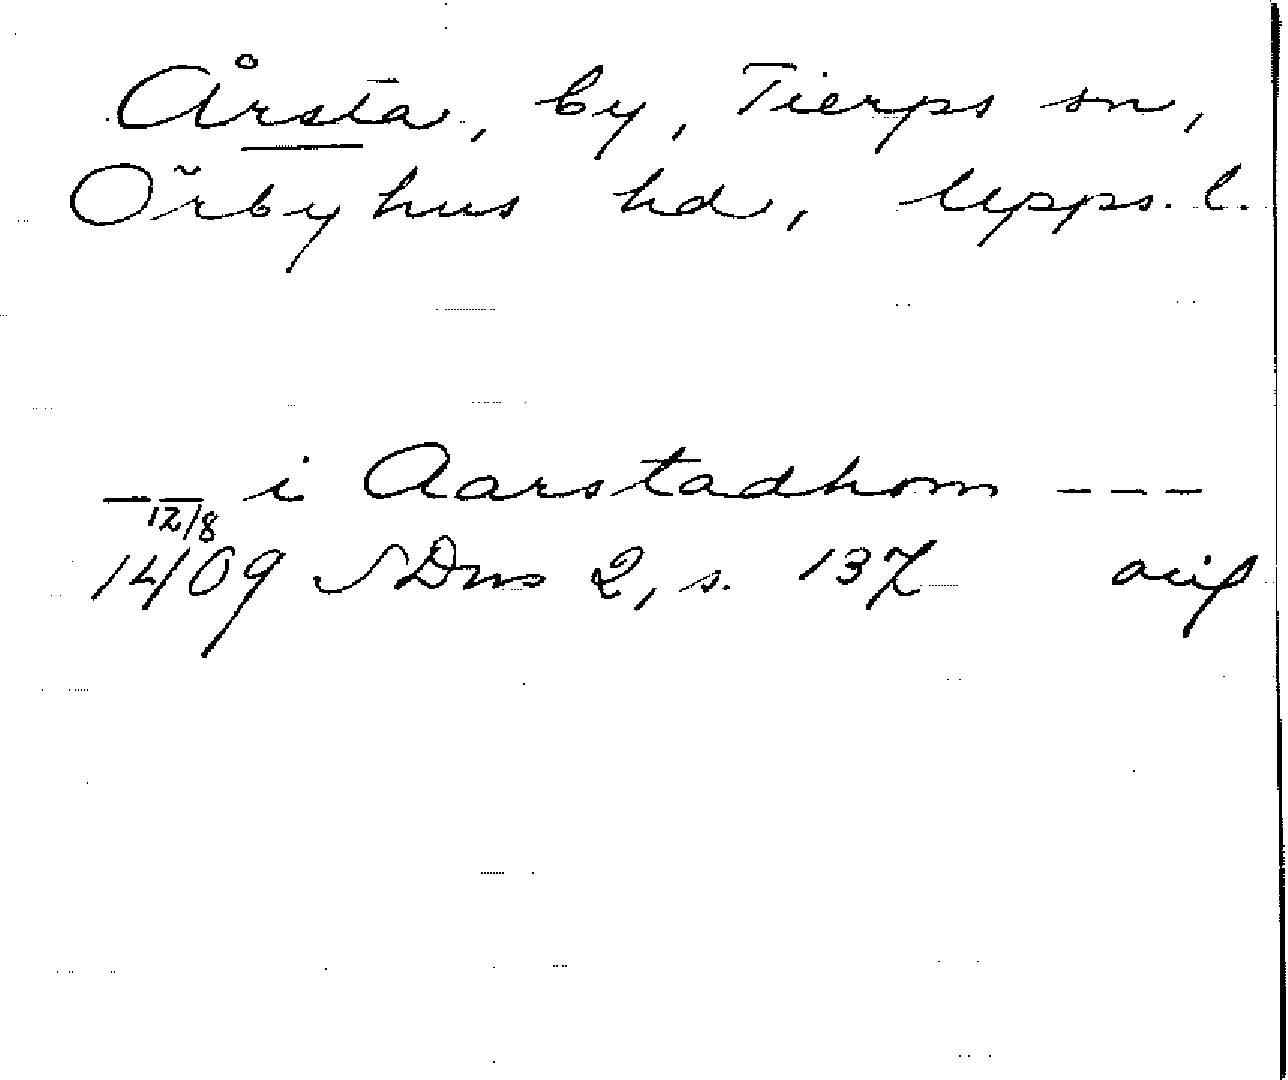 Årsta, by, Tierps sn,
Örbyhus hd, Upps. l.
— — i Aarstadhom - - -
12/8
1409 SDns 2, s. 137 avif